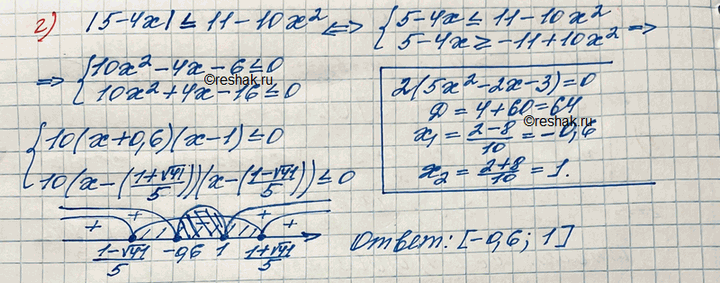 г) |5-4x| ≤ 11-10x² ⟺ { 5-4x ≤ 11-10x²
5-4x ≥ -11+10x² ⟹
⟹ { 10x²-4x-6 ≤ 0
10x²+4x-16 ≤ 0
©reshak.ru
2(5x²-2x-3)=0
Д = 4+60 = 64
©reshak.ru
x₁ = (2-8)/10 = -0,6
x₂ = (2+8)/10 = 1.
{ 10(x+0,6)(x-1) ≤ 0
10(x-((1+√41)/5))(x-((1-√41)/5)) ≤ 0
+ + - + +
(1-√41)/5 -0,6 1 (1+√41)/5
Ответ: [-0,6; 1]